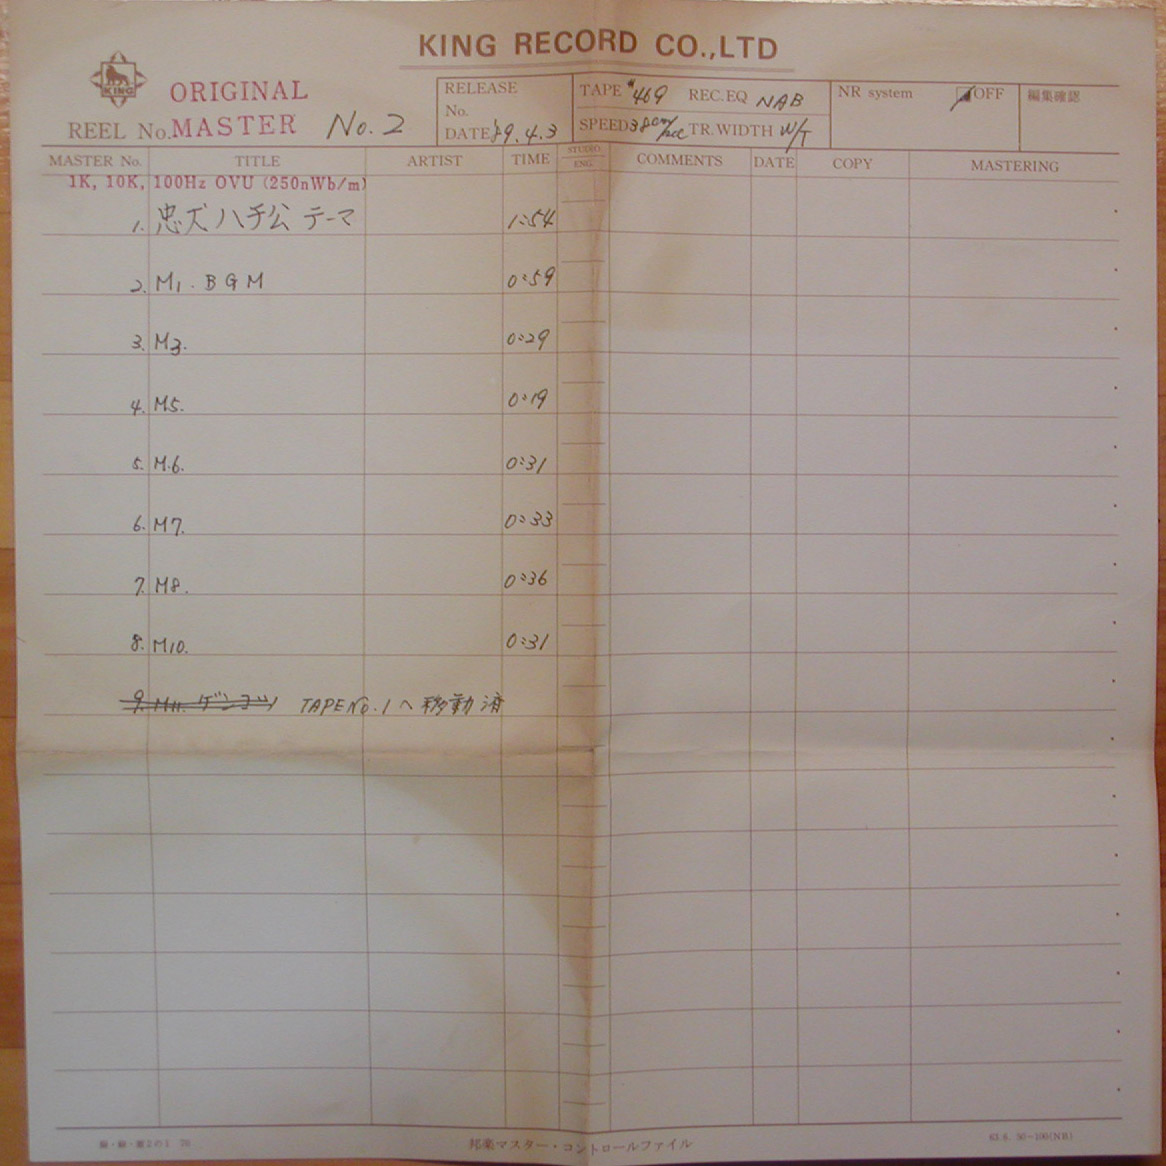 KING RECORD CO.,LTD
KING
ORIGINAL
REEL No. MASTER No. 2
RELEASE
No.
DATE '89.4.3
TAPE #469 REC.EQ NAB
SPEED 38cm/sec TR.WIDTH W/T
NR system OFF
編集確認
MASTER No. TITLE ARTIST TIME STUDIO. ENG. COMMENTS DATE COPY MASTERING
1K, 10K, 100Hz OVU (250nWb/m)
1. 忠犬ハチ公 テーマ 1:54
2. M1. BGM 0:59
3. M3. 0:29
4. M5. 0:19
5. M.6. 0:31
6. M7. 0:33
7. M8. 0:36
8. M10. 0:31
9. M11. ゲンコツ TAPE No.1へ移動済
邦楽マスター・コントロールファイル